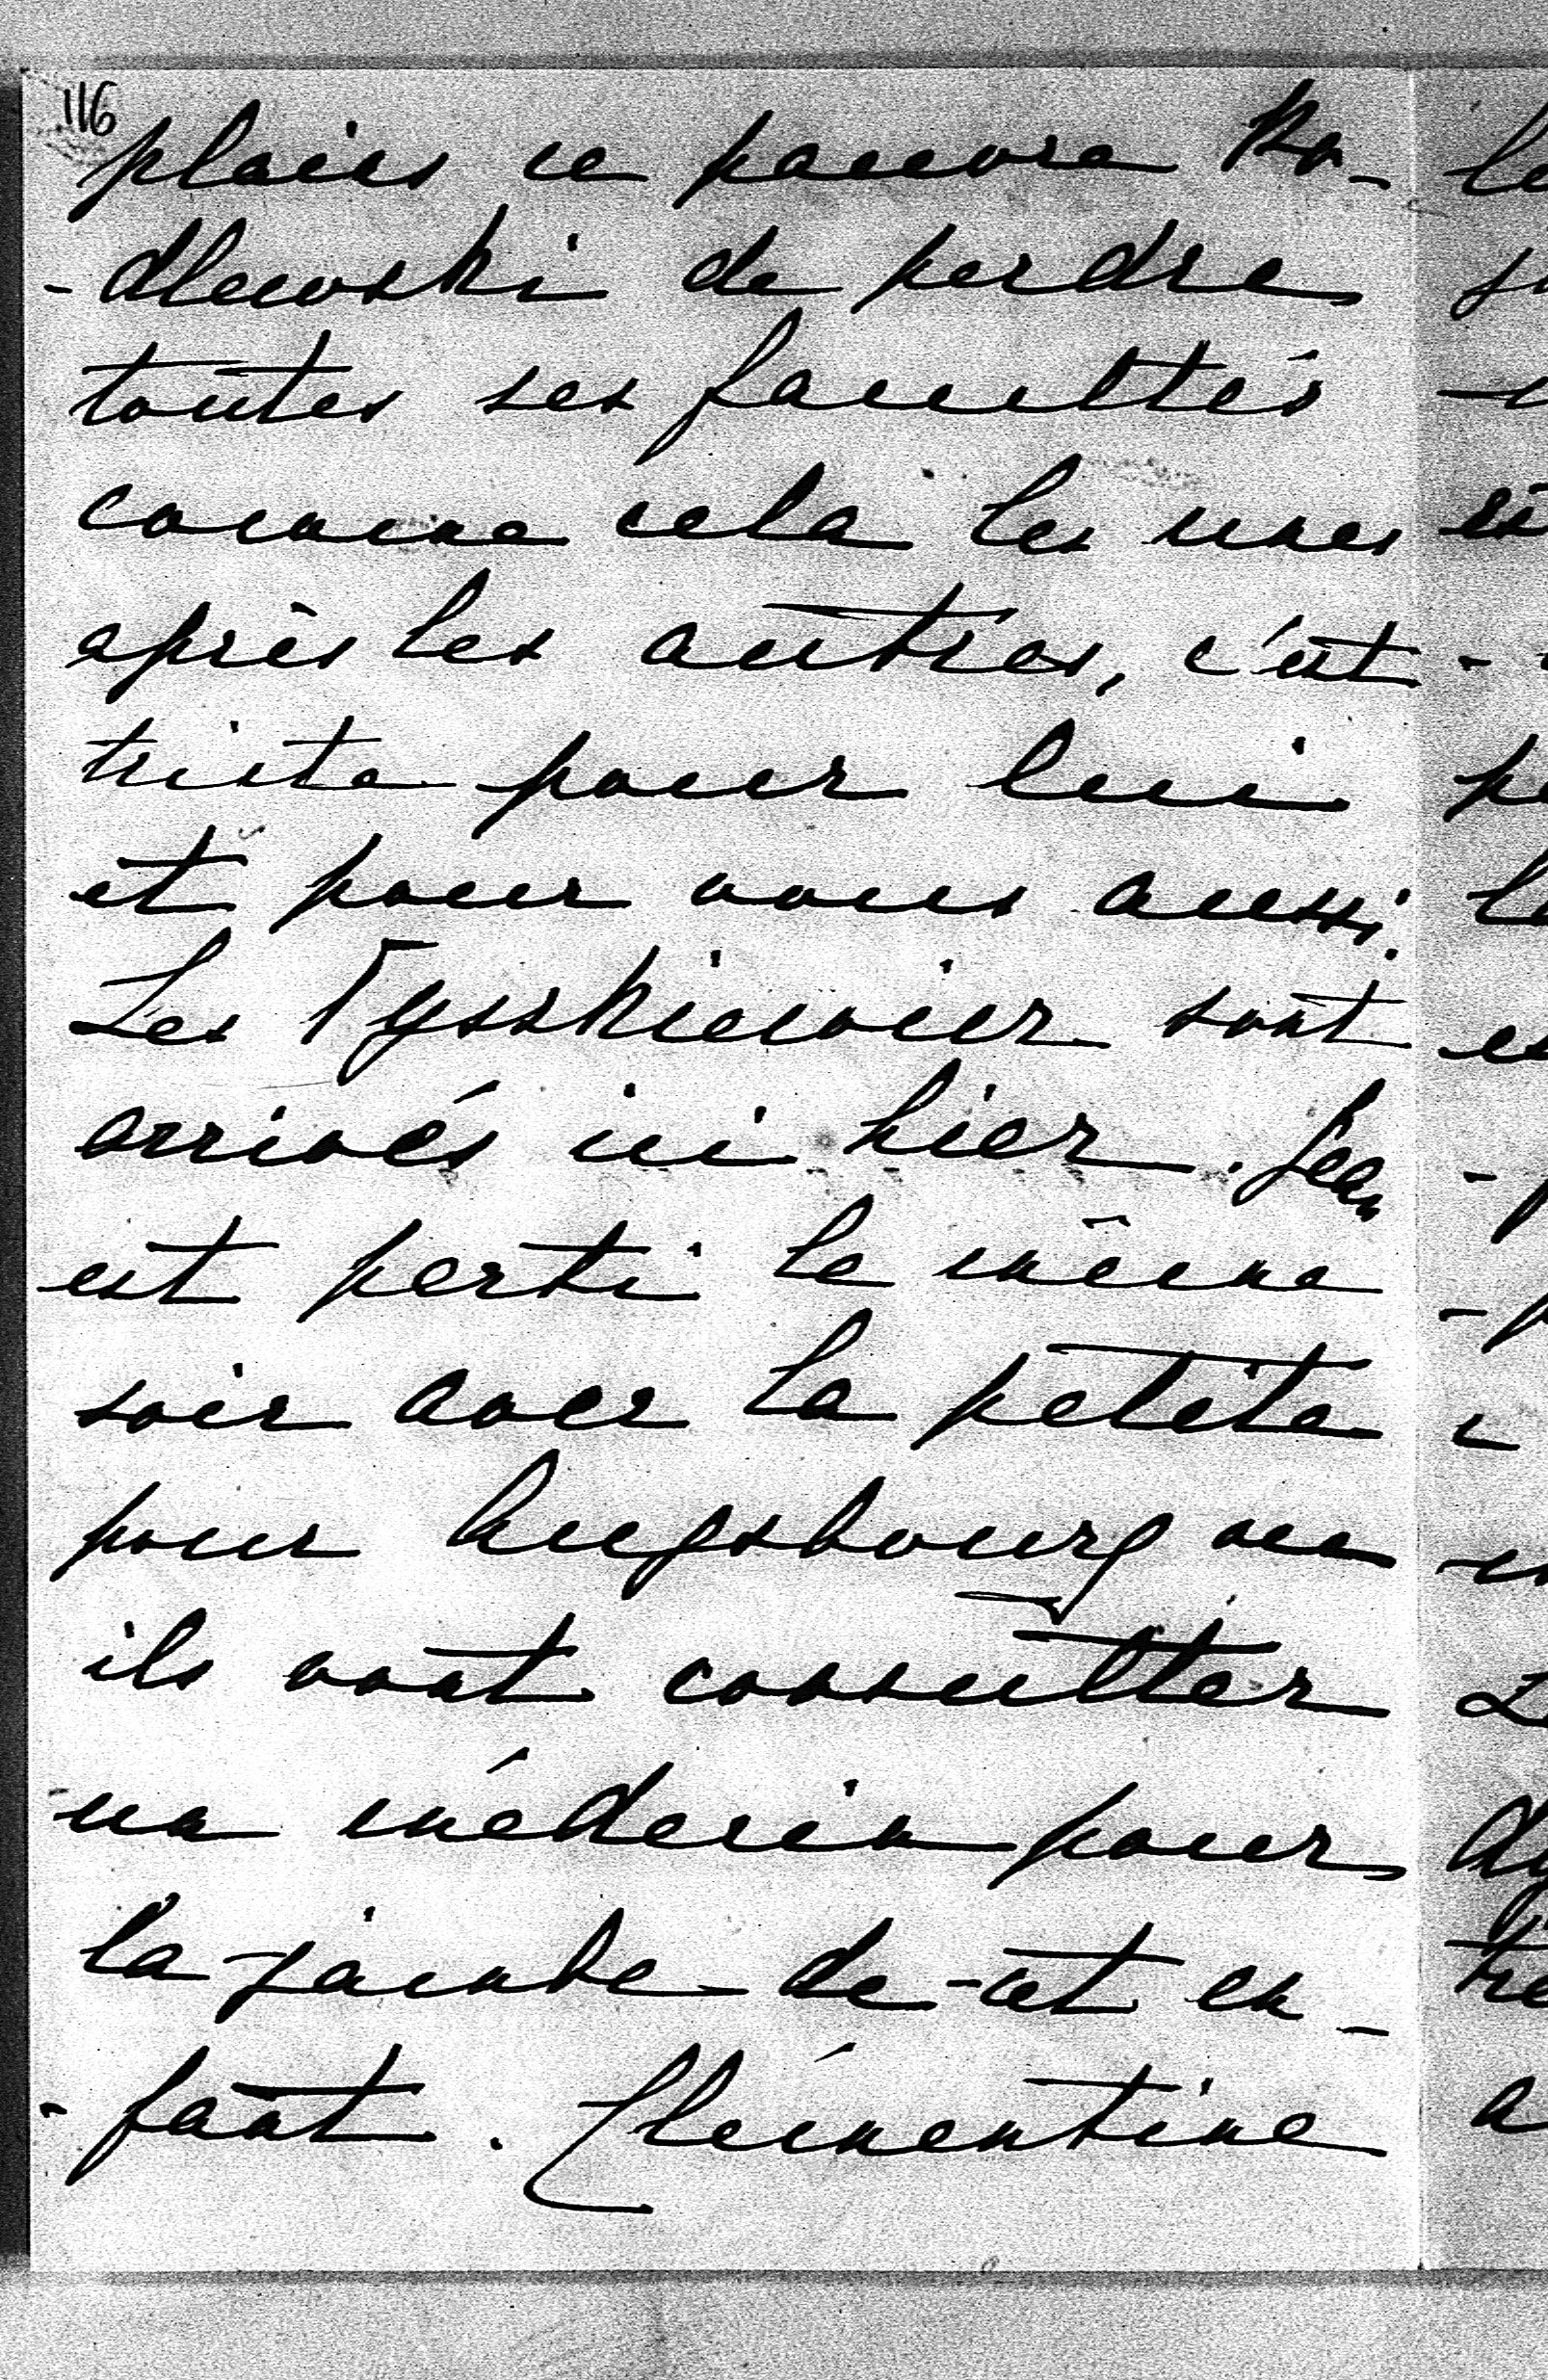 116
plains ce pauvre Ro-
-dlewski de perdre
toutes ses facultés
comme cela les unes
après les autres, c'est
triste pour lui
et pour vous aussi.
Les Tysskiewicz sont
arrivés ici hier. Jean
est parti le même
soir avec la petite
pour Augsbourg ou
ils vont consulter
un médecin pour
la jambe de cet en-
-fant. Clémentine